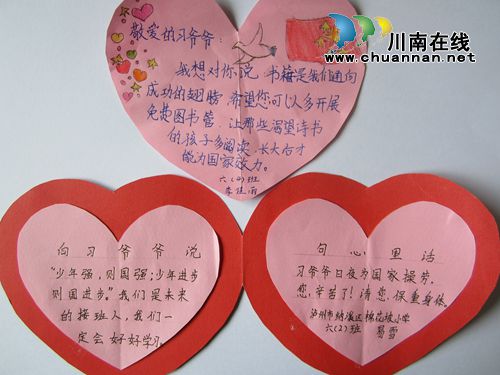 川南在线
www.chuannan.net
敬爱的习爷爷：
我想对你说，书籍是我们通向
成功的翅膀，希望您可以多开展
免费图书馆，让那些渴望诗书
的孩子多阅读，长大后才
能为国家效力。
六(2)班
李佳雨
向习爷爷说
“少年强，则国强；少年进步
则国进步。”我们是未来
的接班人，我们一
定会好好学习。
句心里话
习爷爷日夜为国家操劳，
您，辛苦了！请您，保重身体。
泸州市纳溪区棉花坡小学
六(2)班 易雪